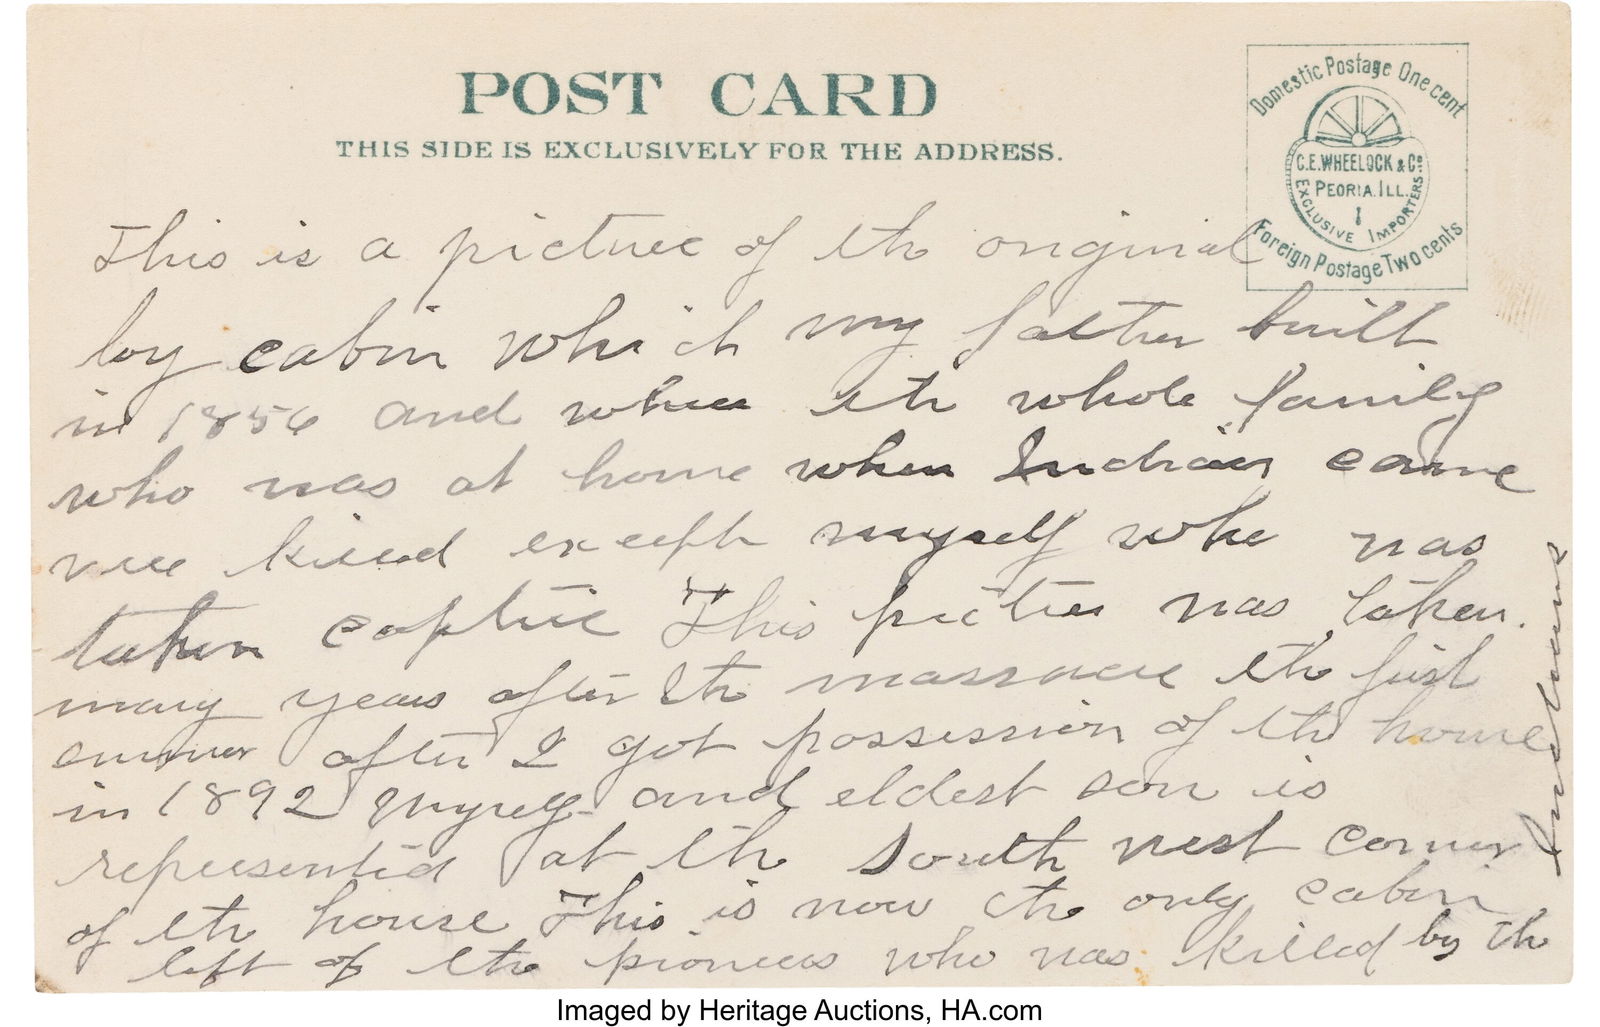 POST CARD
THIS SIDE IS EXCLUSIVELY FOR THE ADDRESS.
Domestic Postage One cent
C.E. WHEELOCK & Co
PEORIA. ILL.
EXCLUSIVE IMPORTERS
Foreign Postage Two cents
This is a picture of the original
log cabin which my father built
in 1856 and where the whole family
who was at home when Indians came
were killed except myself who was
taken captive This picture was taken.
many years after the massacre the first
summer after I got possession of the house
in 1892 Myself and eldest son is
represented at the South west corner
of the house This is now the only cabin
left of the pioneers who was killed by the
Indians
Imaged by Heritage Auctions, HA.com